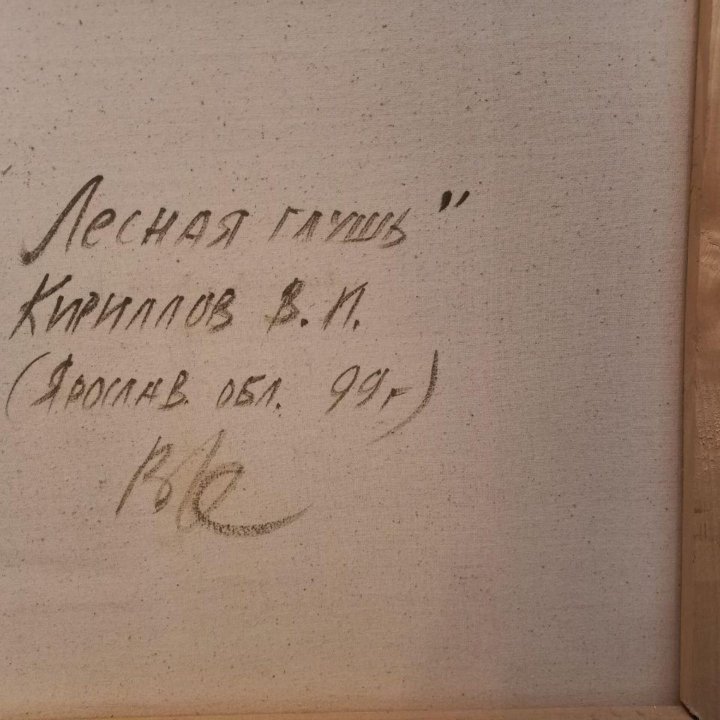 Лесная глушь"
Кириллов В. И.
(Ярослав. обл. 99г)